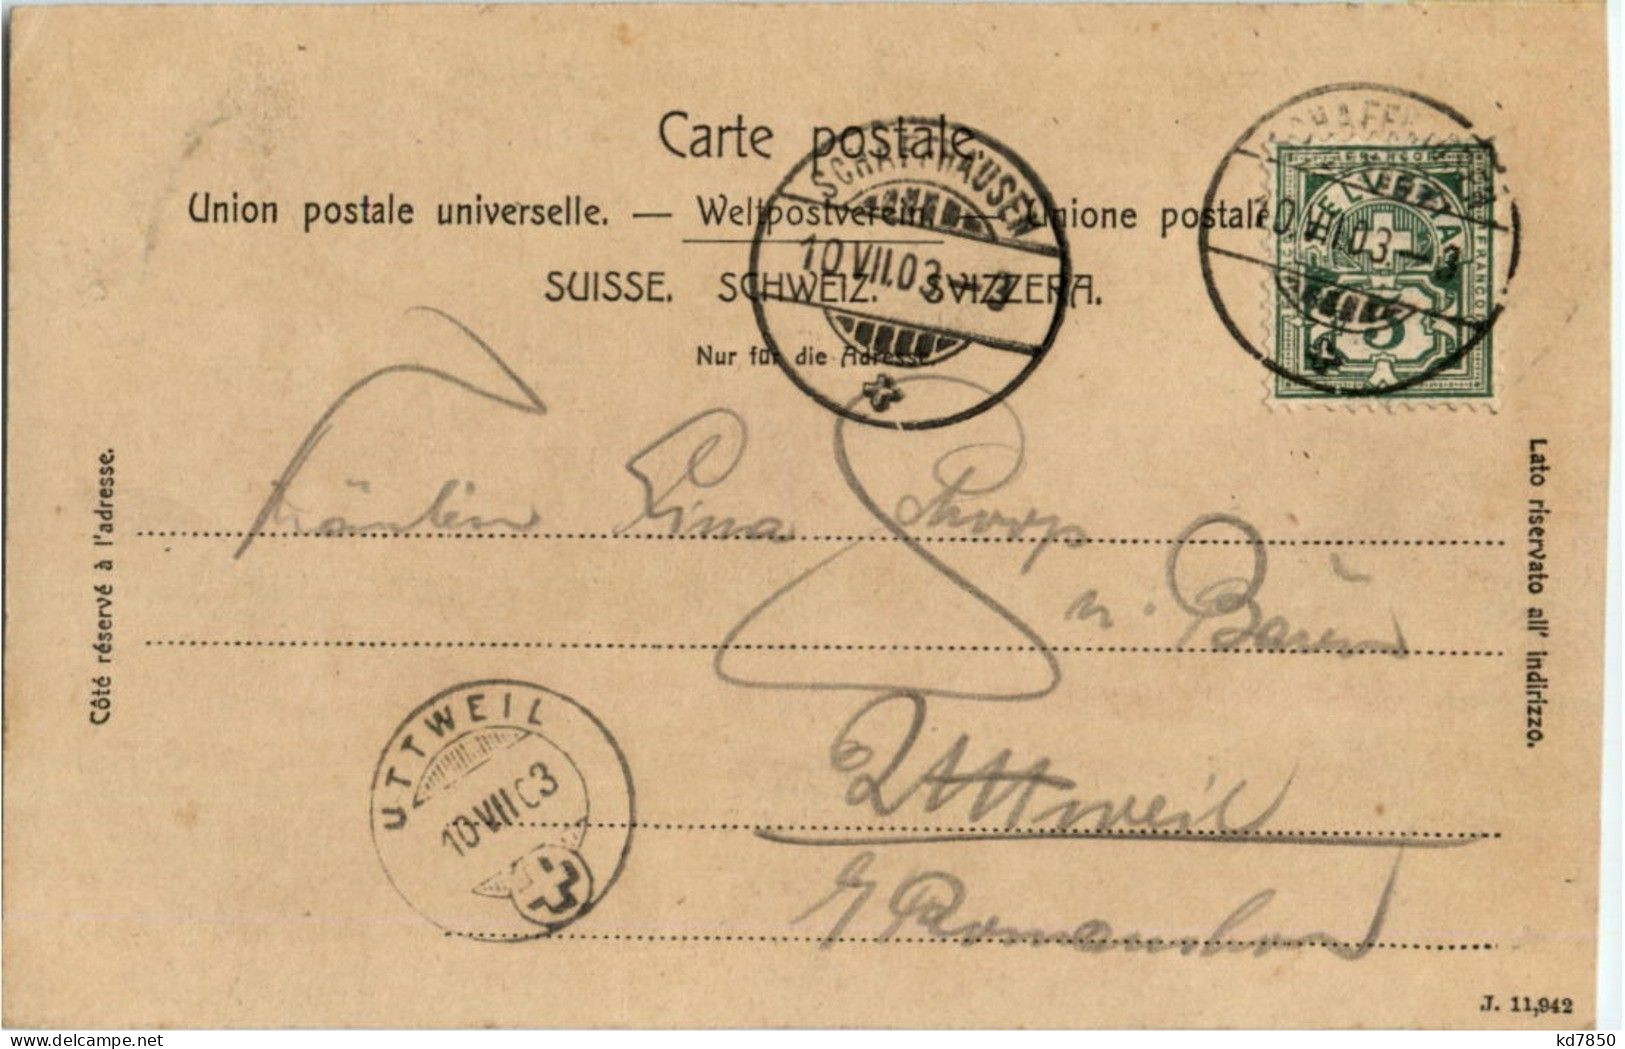 Carte postale.
Union postale universelle. — Weltpostverein. — Unione postale
SUISSE. SCHWEIZ. SVIZZERA.
Nur für die Adresse.
SCHAFFHAUSEN
10.VII.03.–3
SCHAFFHAUSEN
10.VII.03.–3
HELVETIA
FRANCO
FRANCO
5
Côté réservé à l'adresse.
Lato riservato all' indirizzo.
Fräulein Lina
Uttweil
Romanshorn
UTTWEIL
10.VII 03
J. 11,942
kd7850